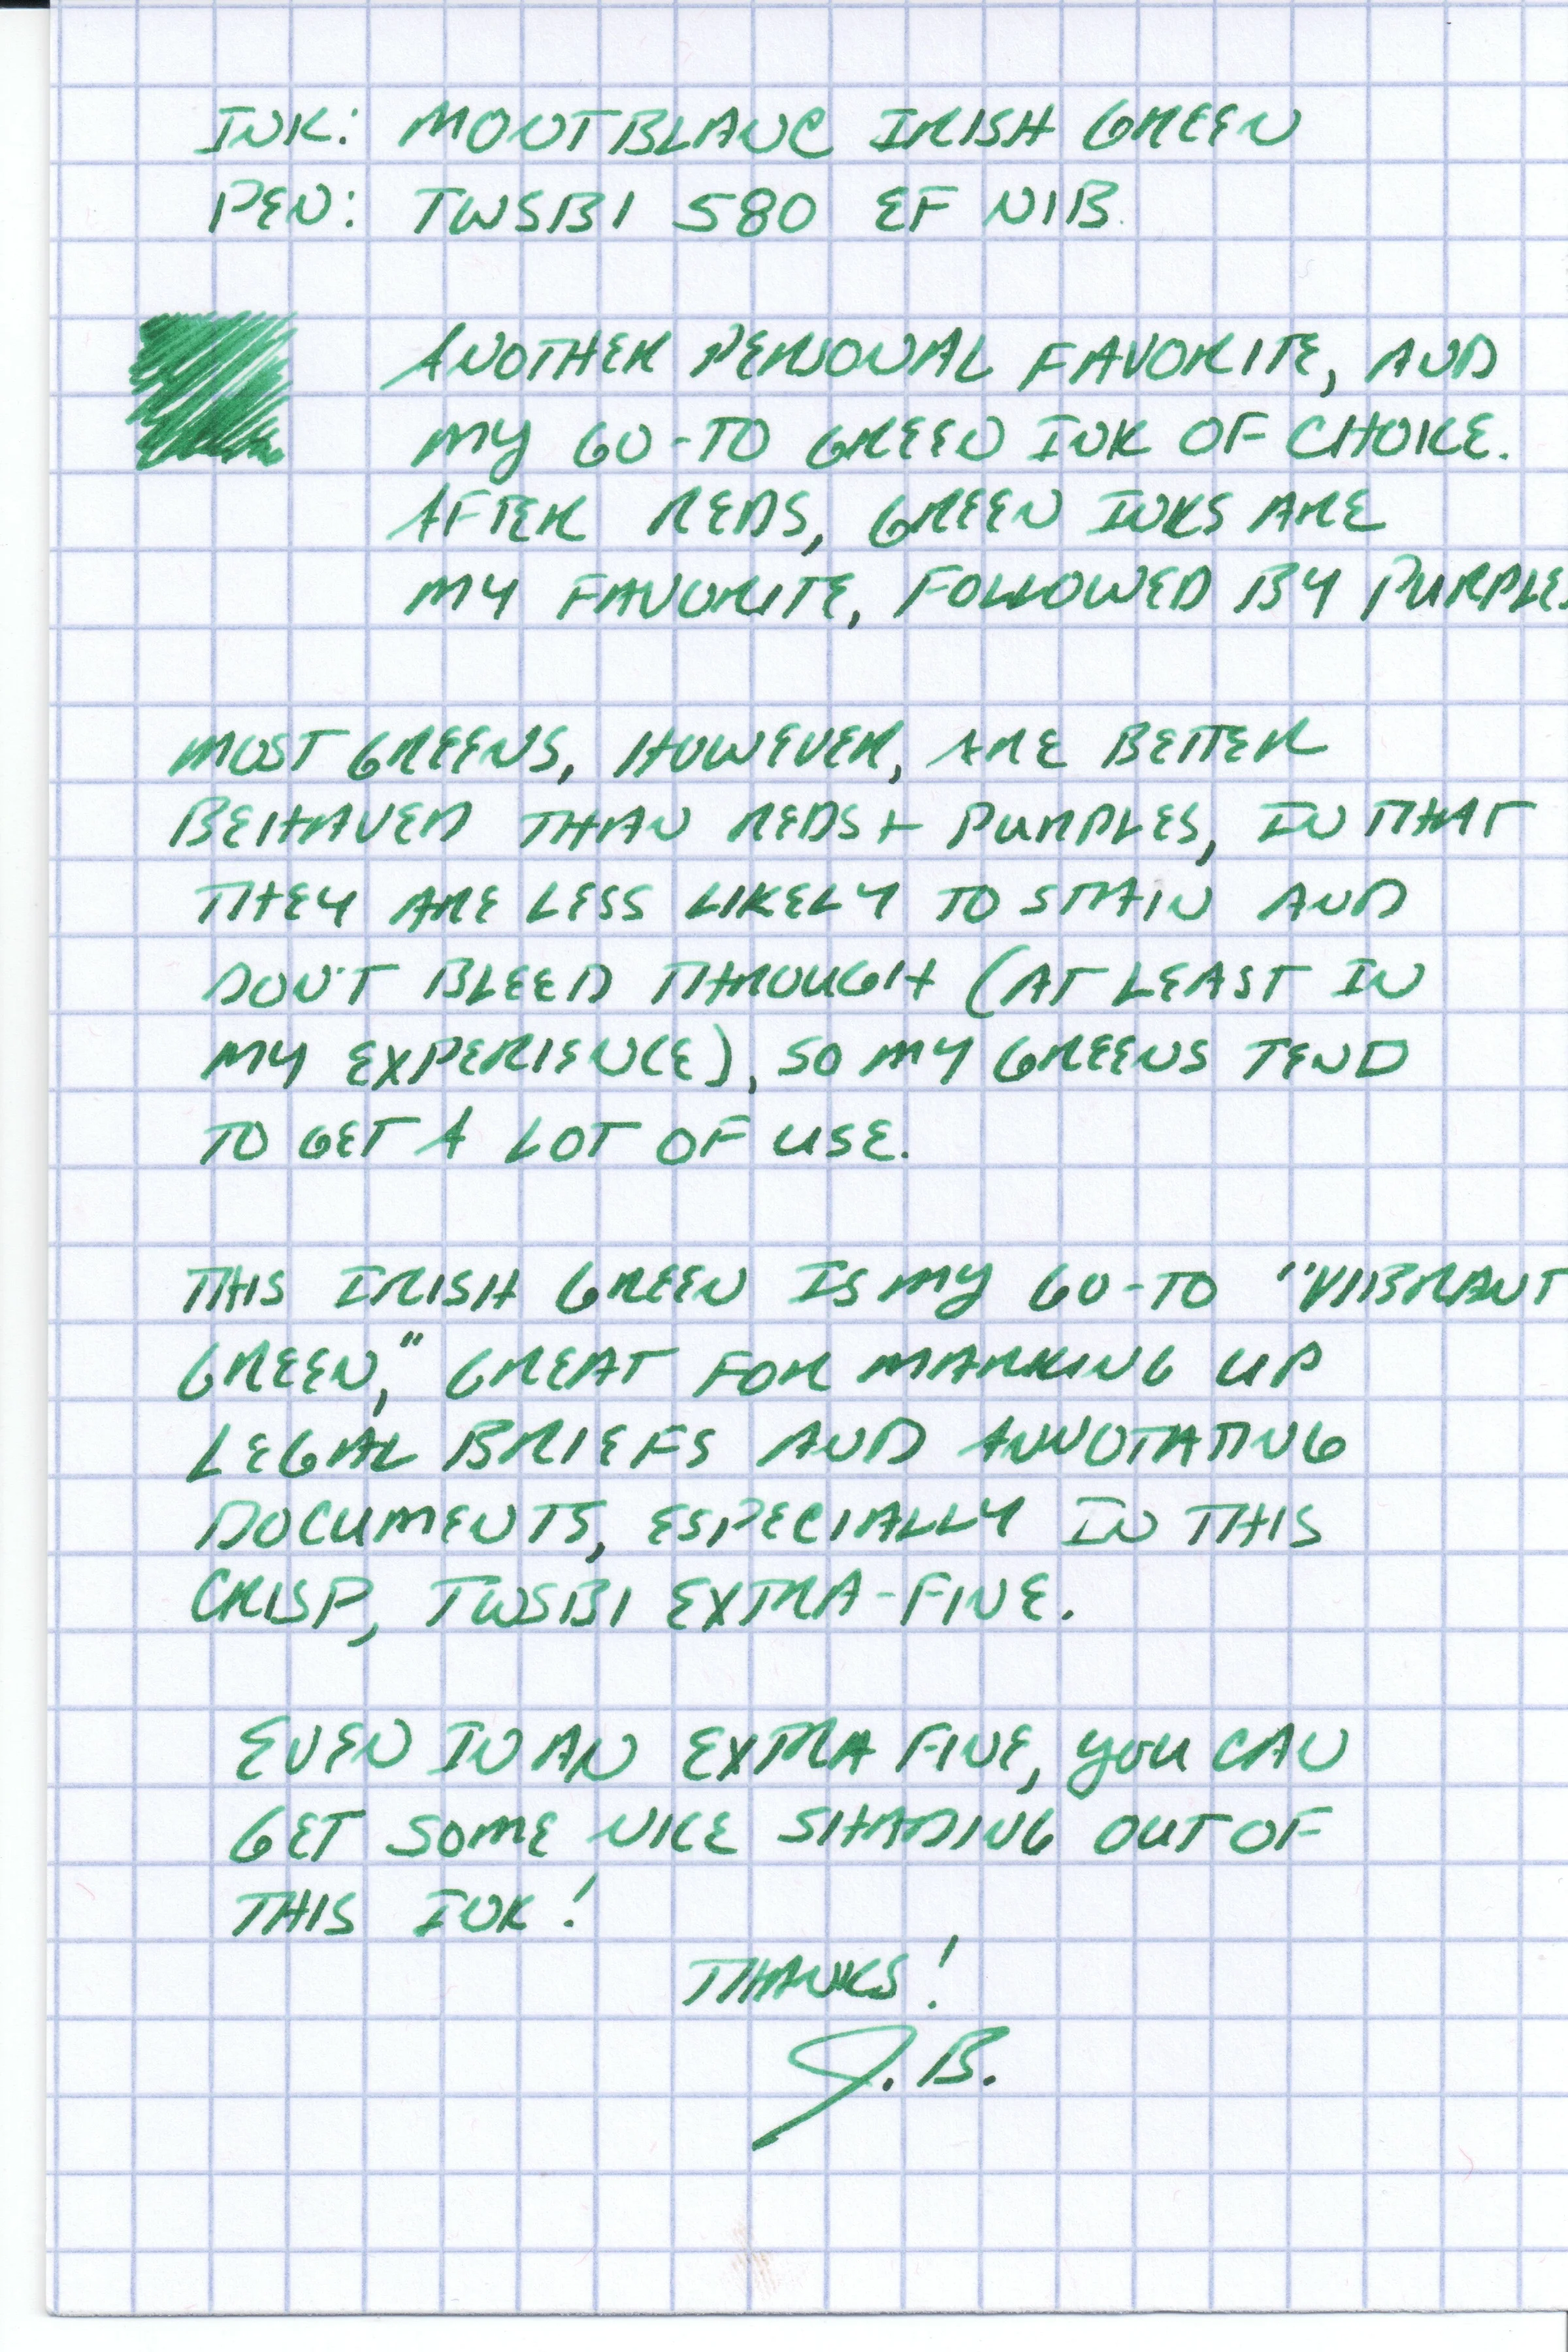 INK: MONTBLANC IRISH GREEN
PEN: TWSBI 580 EF NIB.
ANOTHER PERSONAL FAVORITE, AND
MY GO-TO GREEN INK OF CHOICE.
AFTER REDS, GREEN INKS ARE
MY FAVORITE, FOLLOWED BY PURPLE.
MOST GREENS, HOWEVER, ARE BETTER
BEHAVED THAN REDS + PURPLES, IN THAT
THEY ARE LESS LIKELY TO STAIN AND
DON'T BLEED THROUGH (AT LEAST IN
MY EXPERIENCE), SO MY GREENS TEND
TO GET A LOT OF USE.
THIS IRISH GREEN IS MY GO-TO "VIBRANT
GREEN," GREAT FOR MARKING UP
LEGAL BRIEFS AND ANNOTATING
DOCUMENTS, ESPECIALLY IN THIS
CRISP, TWSBI EXTRA-FINE.
EVEN IN AN EXTRA FINE, YOU CAN
GET SOME NICE SHADING OUT OF
THIS INK!
THANKS!
J.B.